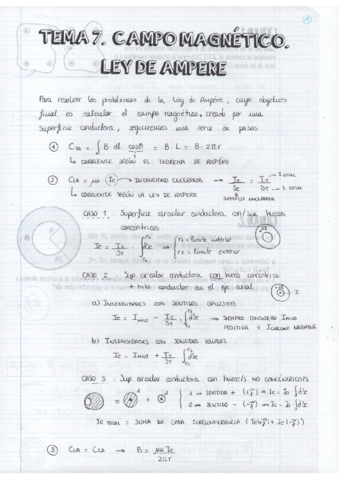 TEMA 7. CAMPO MAGNÉTICO.
LEY DE AMPERE
Para resolver los problemas de la Ley de Ampère, cuyo objetivo
final es calcular el campo magnético, creado por una
superficie conductora, seguiremos una serie de pasos
① C = ∫ B dl cosθ = B · L = B · 2πr
↳ CORRIENTE SEGÚN EL TEOREMA DE AMPÈRE
② CLA = μ₀ Ie → INTENSIDAD ENCERRADA → Ie/Se = IT/ST → S TOTAL
↳ CORRIENTE SEGÚN LA LEY DE AMPERE
SUPERFICIE ENCERRADA
CASO 1. Superficie circular conductora con/sin huecos
concéntricos
Ie = IT/ST · ∫dSe → r2 = límite exterior
CASO 2. Sup circular conductora con hueco concéntrico
+ hilo conductor en el eje axial
a) INTENSIDADES CON SENTIDOS OPUESTOS
Ie = IHILO − IT/ST ∫dSe → SIEMPRE CONSIDERO IHILO
POSITIVA Y ICILINDRO NEGATIVA
b) INTENSIDADES CON SENTIDOS IGUALES
Ie = IHILO + IT/ST ∫dSe
CASO 3. Sup circular conductora con hueco/s NO CONCÉNTRICO/S
Ie TOTAL = SUMA DE CADA CIRCUNFERENCIA
③ CLA = → B = μ₀ Ie / 2πr